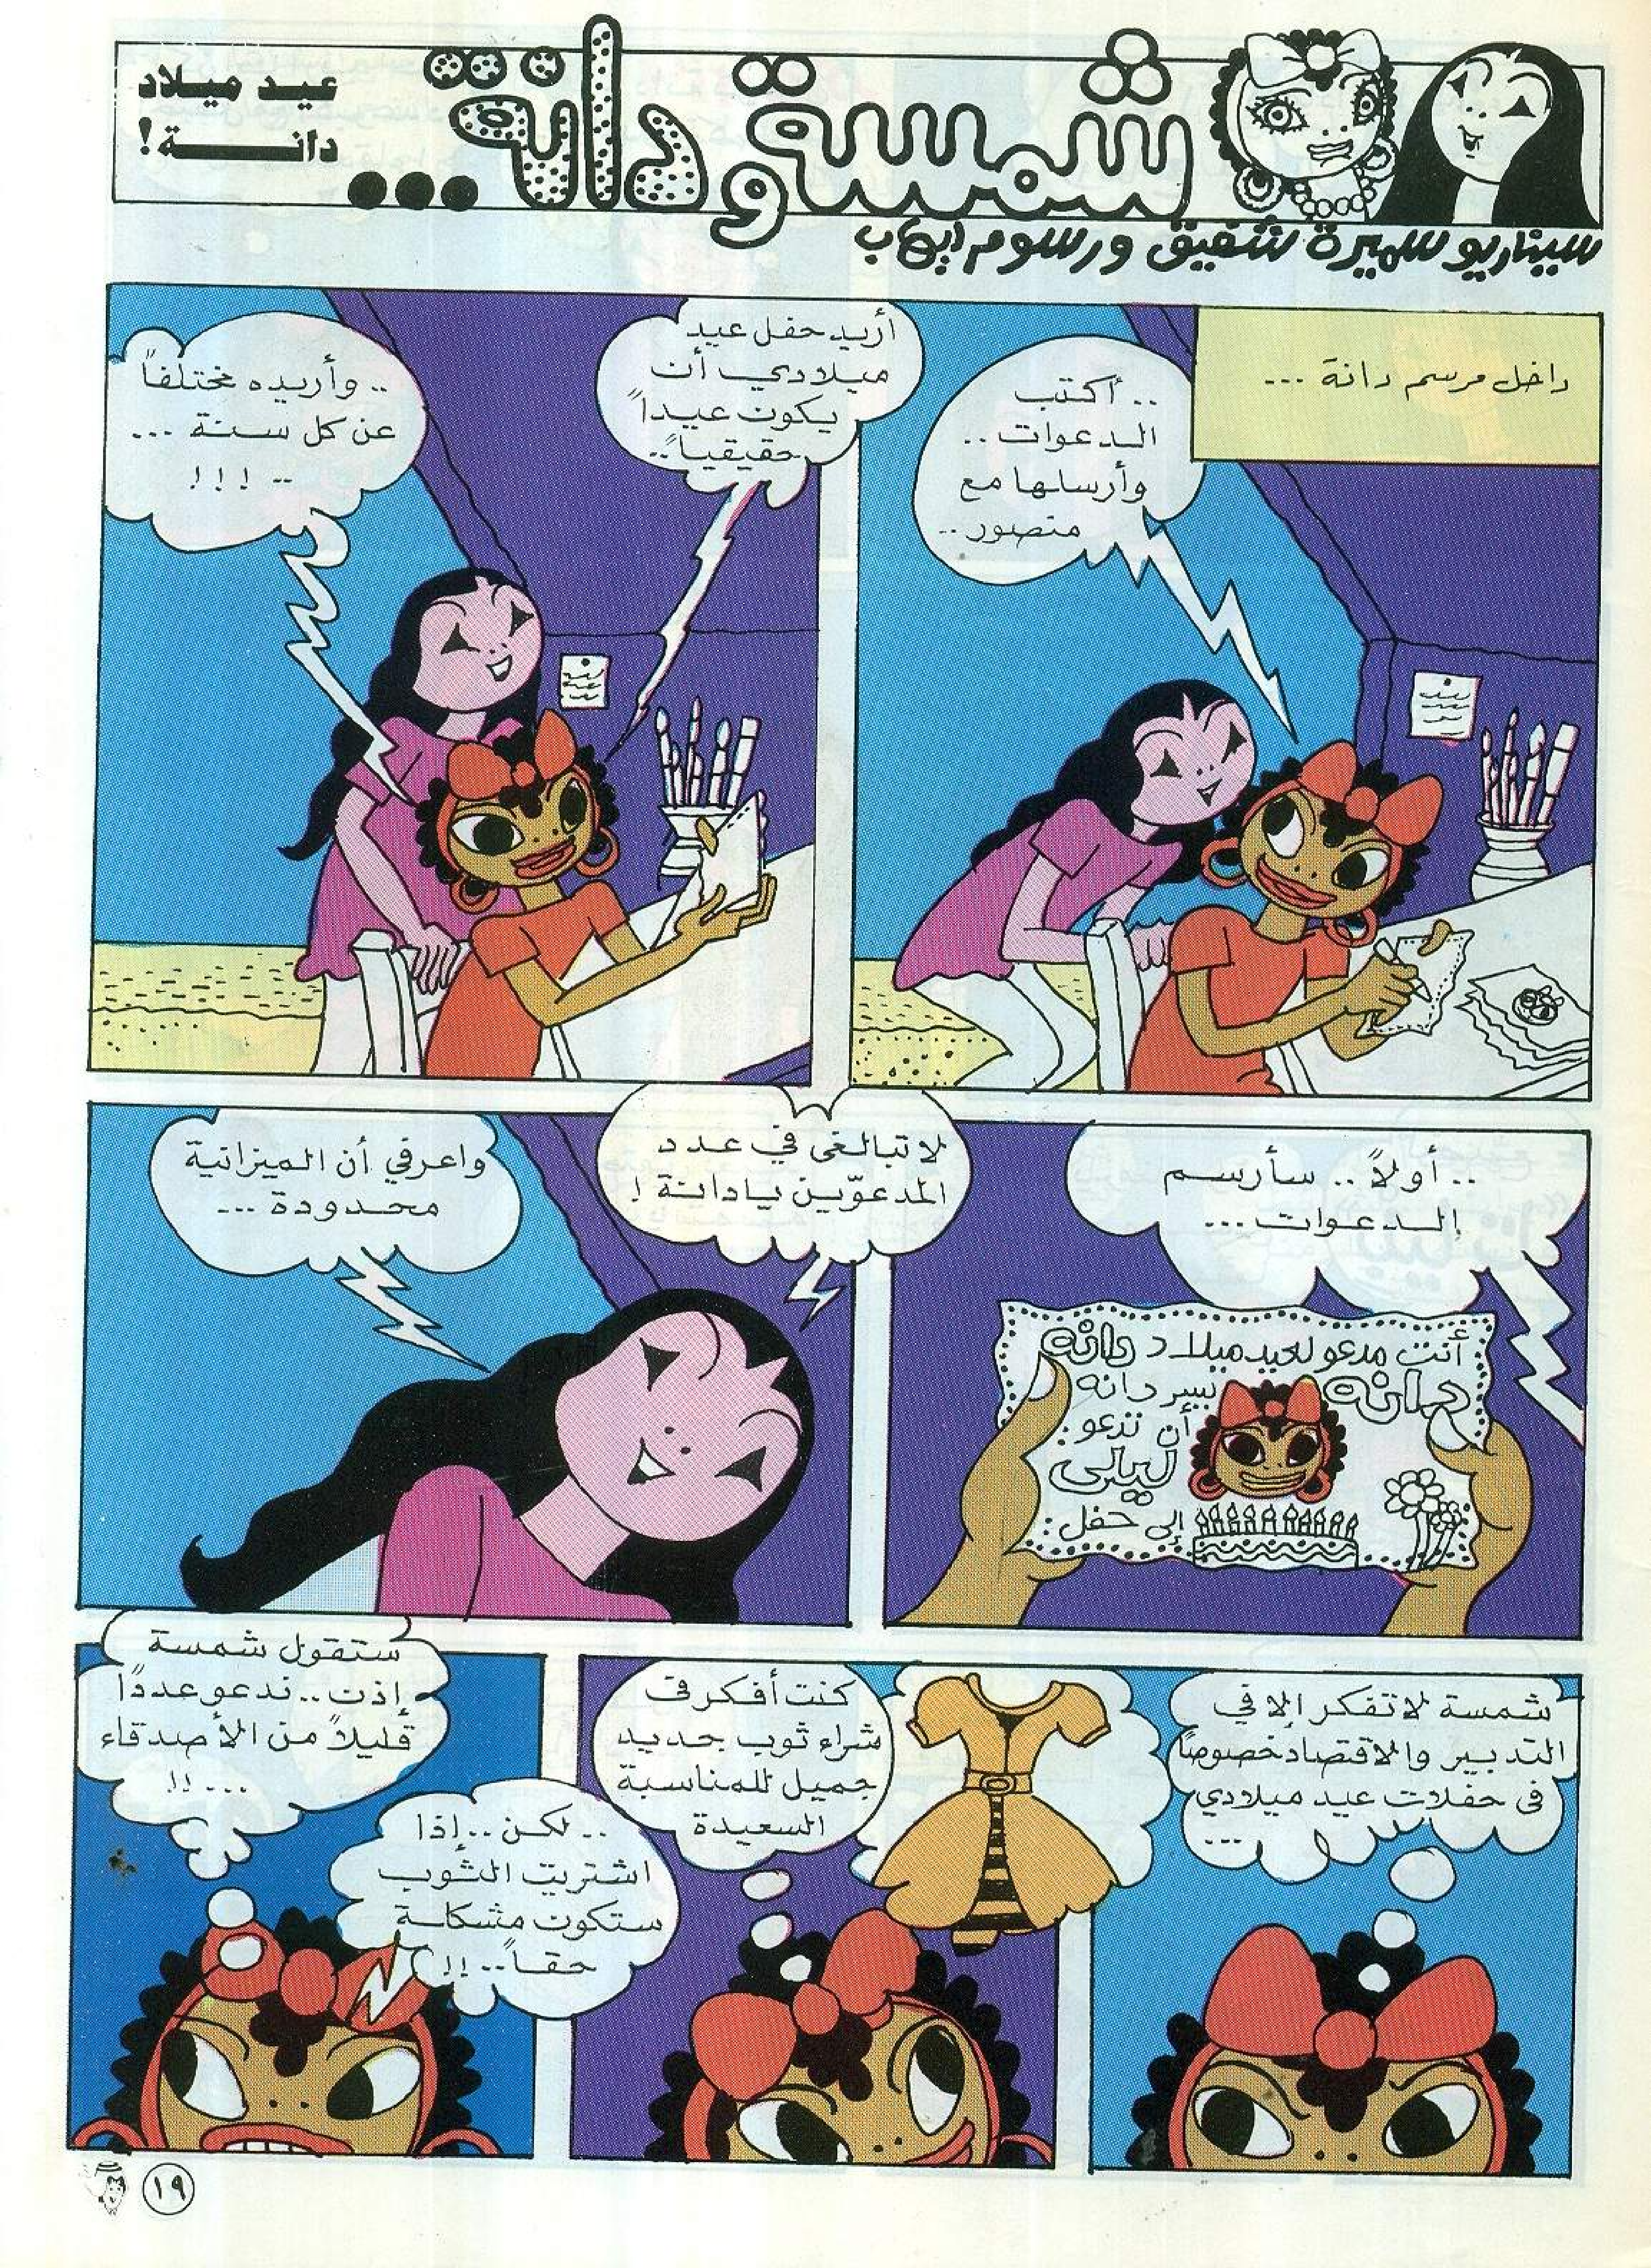 شمسة ودانة...
عيد ميلاد
دانة!
سيناريو سميرة شفيق ورسوم إيهاب
داخل مرسم دانة ...
.. أكتب
الدعوات ..
وأرسلها مع
منصور ..
أريد حفل عيد
ميلادي أن
يكون عيداً
حقيقياً ..
.. وأريده مختلفاً
عن كل سنة ...
.. !!!
.. أولاً .. سأرسم
الدعوات ...
أنت مدعو لعيد ميلاد دانه
دانه
يسر دانه
أن تدعو :
ليلى
إلى حفل :
لا تبالغي في عدد
المدعوّين يا دانة !
واعرفي أن الميزانية
محدودة ...
شمسة لا تفكر إلا في
التدبير والاقتصاد خصوصاً
فى حفلات عيد ميلادي
...
كنت أفكر فى
شراء ثوب جديد
جميل للمناسبة
السعيدة
ستقول شمسة
إذن .. ندعو عددًا
قليلاً من الأصدقاء
... !!
.. لكن .. إذا
اشتريت الثوب
ستكون مشكلة
حقاً .. !!
١٩